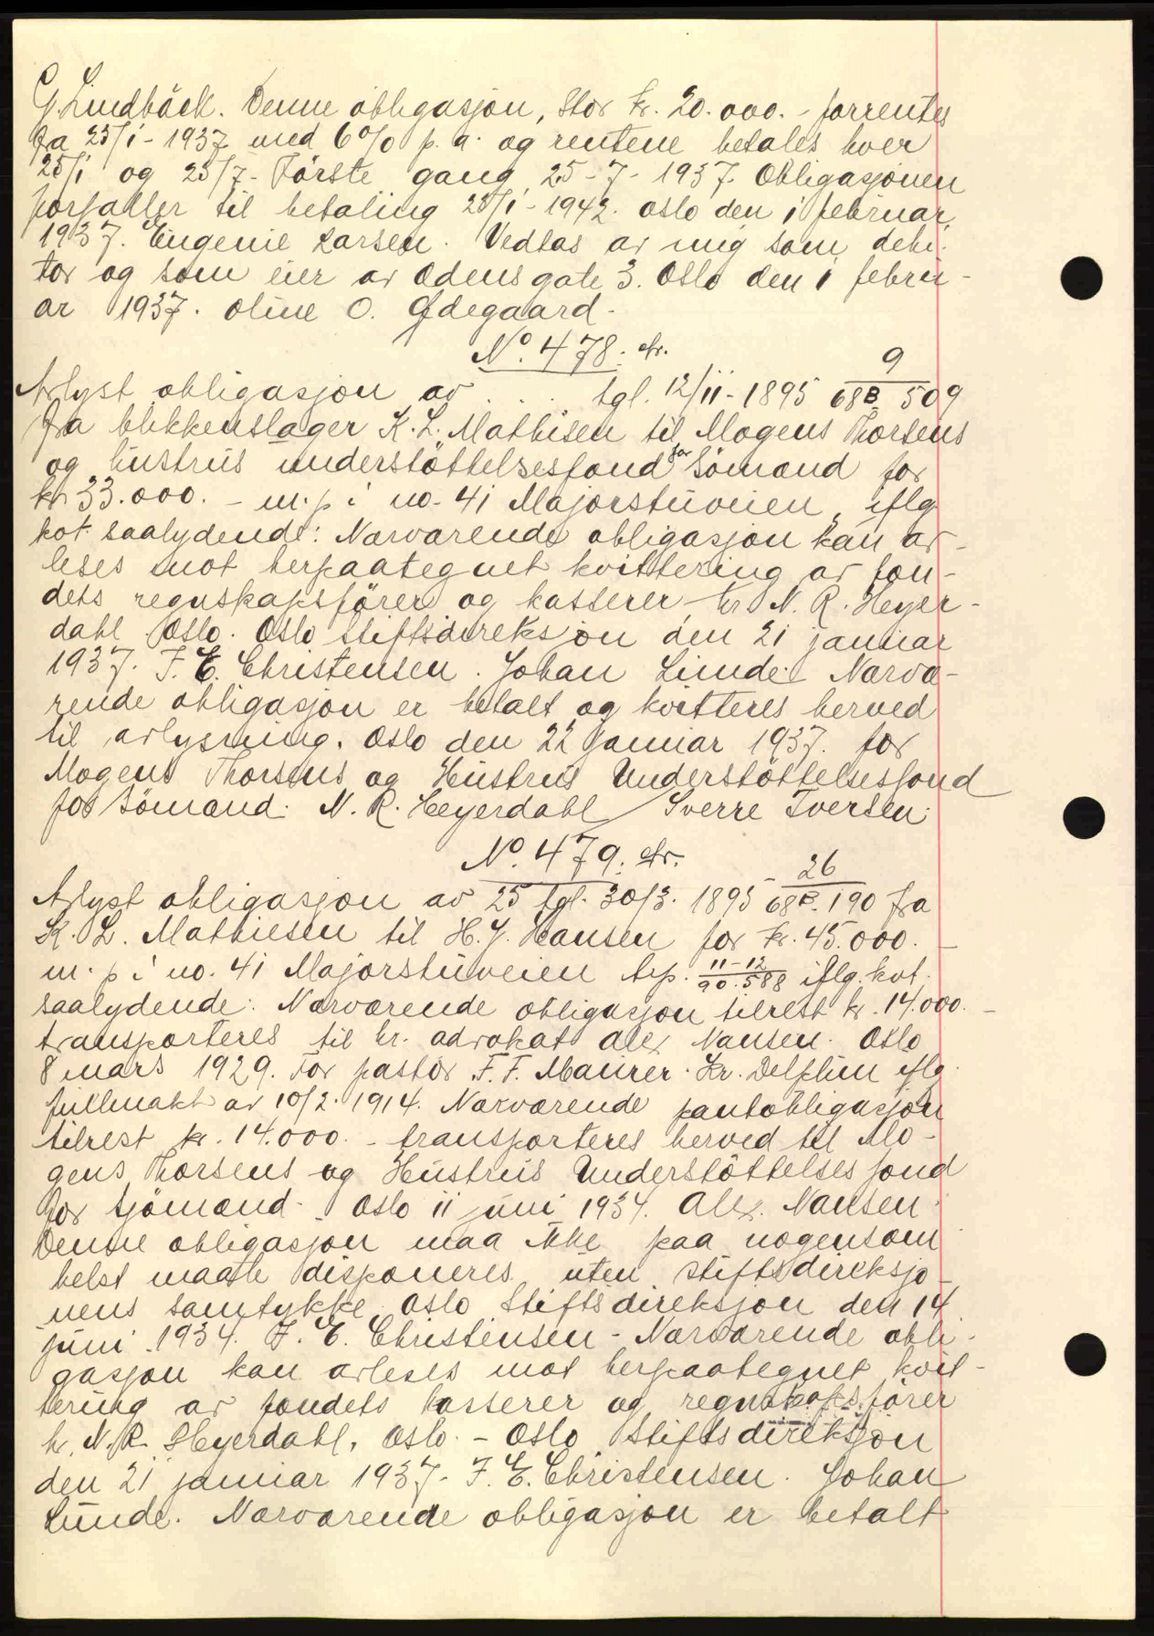 G. Lindbäck. Denne obligasjon, stor kr. 20.000.- forrentes
fra 25/1-1937 med 6% p.a. og rentene betales hver
25/1 og 25/7- Första gang 25-7-1937. Obligasjonen
forfaller til betaling 25/1-1942. Oslo den 1 februar
1937. Eugenie Larsen. Vedtas av mig som debi-
tor og som eier av Odens gate 3. Oslo den 1 febru-
ar 1937. Oline O. Ødegaard.
No. 478.
Avlyst obligasjon av . . . tgl. 12/11-1895 9/68B 509
fra blikkenslager K. L. Mathisen til Mogens Thorsens
og hustrus understöttelsesfond for Sömænd for
kr. 33.000.- m. p. i no. 41 Majorstuveien iflg.
kvt. saalydende: Nærværende obligasjon kan av-
leses mot herpaategnet kvittering av fon-
dets regnskapsfører og kasserer hr. N. R. Heyer-
dahl Oslo. Oslo Stiftsdireksjon den 21 januar
1937. F. E. Christensen. Johan Lunde. Nærvæ-
rende obligasjon er betalt og kvitteres herved
til avlysning. Oslo den 22 januar 1937. for
Mogens Thorsens og Hustrus Understöttelsesfond
for Sömænd. N. R. Heyerdahl / Sverre Iversen.
No. 479.
Avlyst obligasjon av 25 tgl. 30/3. 1895 26/68B. 190 fra
K. L. Mathiesen til H. J. Hansen for kr. 45.000.-
m. p. i no. 41 Majorstuveien trp. 11-12/90.588 iflg. kvt.
saalydende: Nærværende obligasjon tilrest kr. 14.000.-
transporteres til hr. advokat Alex Nansen. Oslo
8 mars 1929. For pastor F. F. Maurer. Kr. Delphin iflg.
fullmakt av 10/2. 1914. Nærværende pantobligasjon
tilrest kr. 14.000.- transporteres herved til Mo-
gens Thorsens og Hustrus Understöttelsesfond
for Sjömænd. Oslo 11 juni 1934. Alex. Nansen.
Denne obligasjon maa ikke paa nogensom
helst maate disponeres uten stiftsdireksjo-
nens samtykke. Oslo Stiftsdireksjon den 14
juni 1934. F. E. Christensen - Nærværende obli-
gasjon kan avleses mot herpaategnet kvit-
tering av fondets kasserer og regnskapsfører
hr. N. R. Heyerdahl, Oslo. - Oslo Stiftsdireksjon
den 21 januar 1937. F. E. Christensen. Johan
Lunde. Nærværende obligasjon er betalt